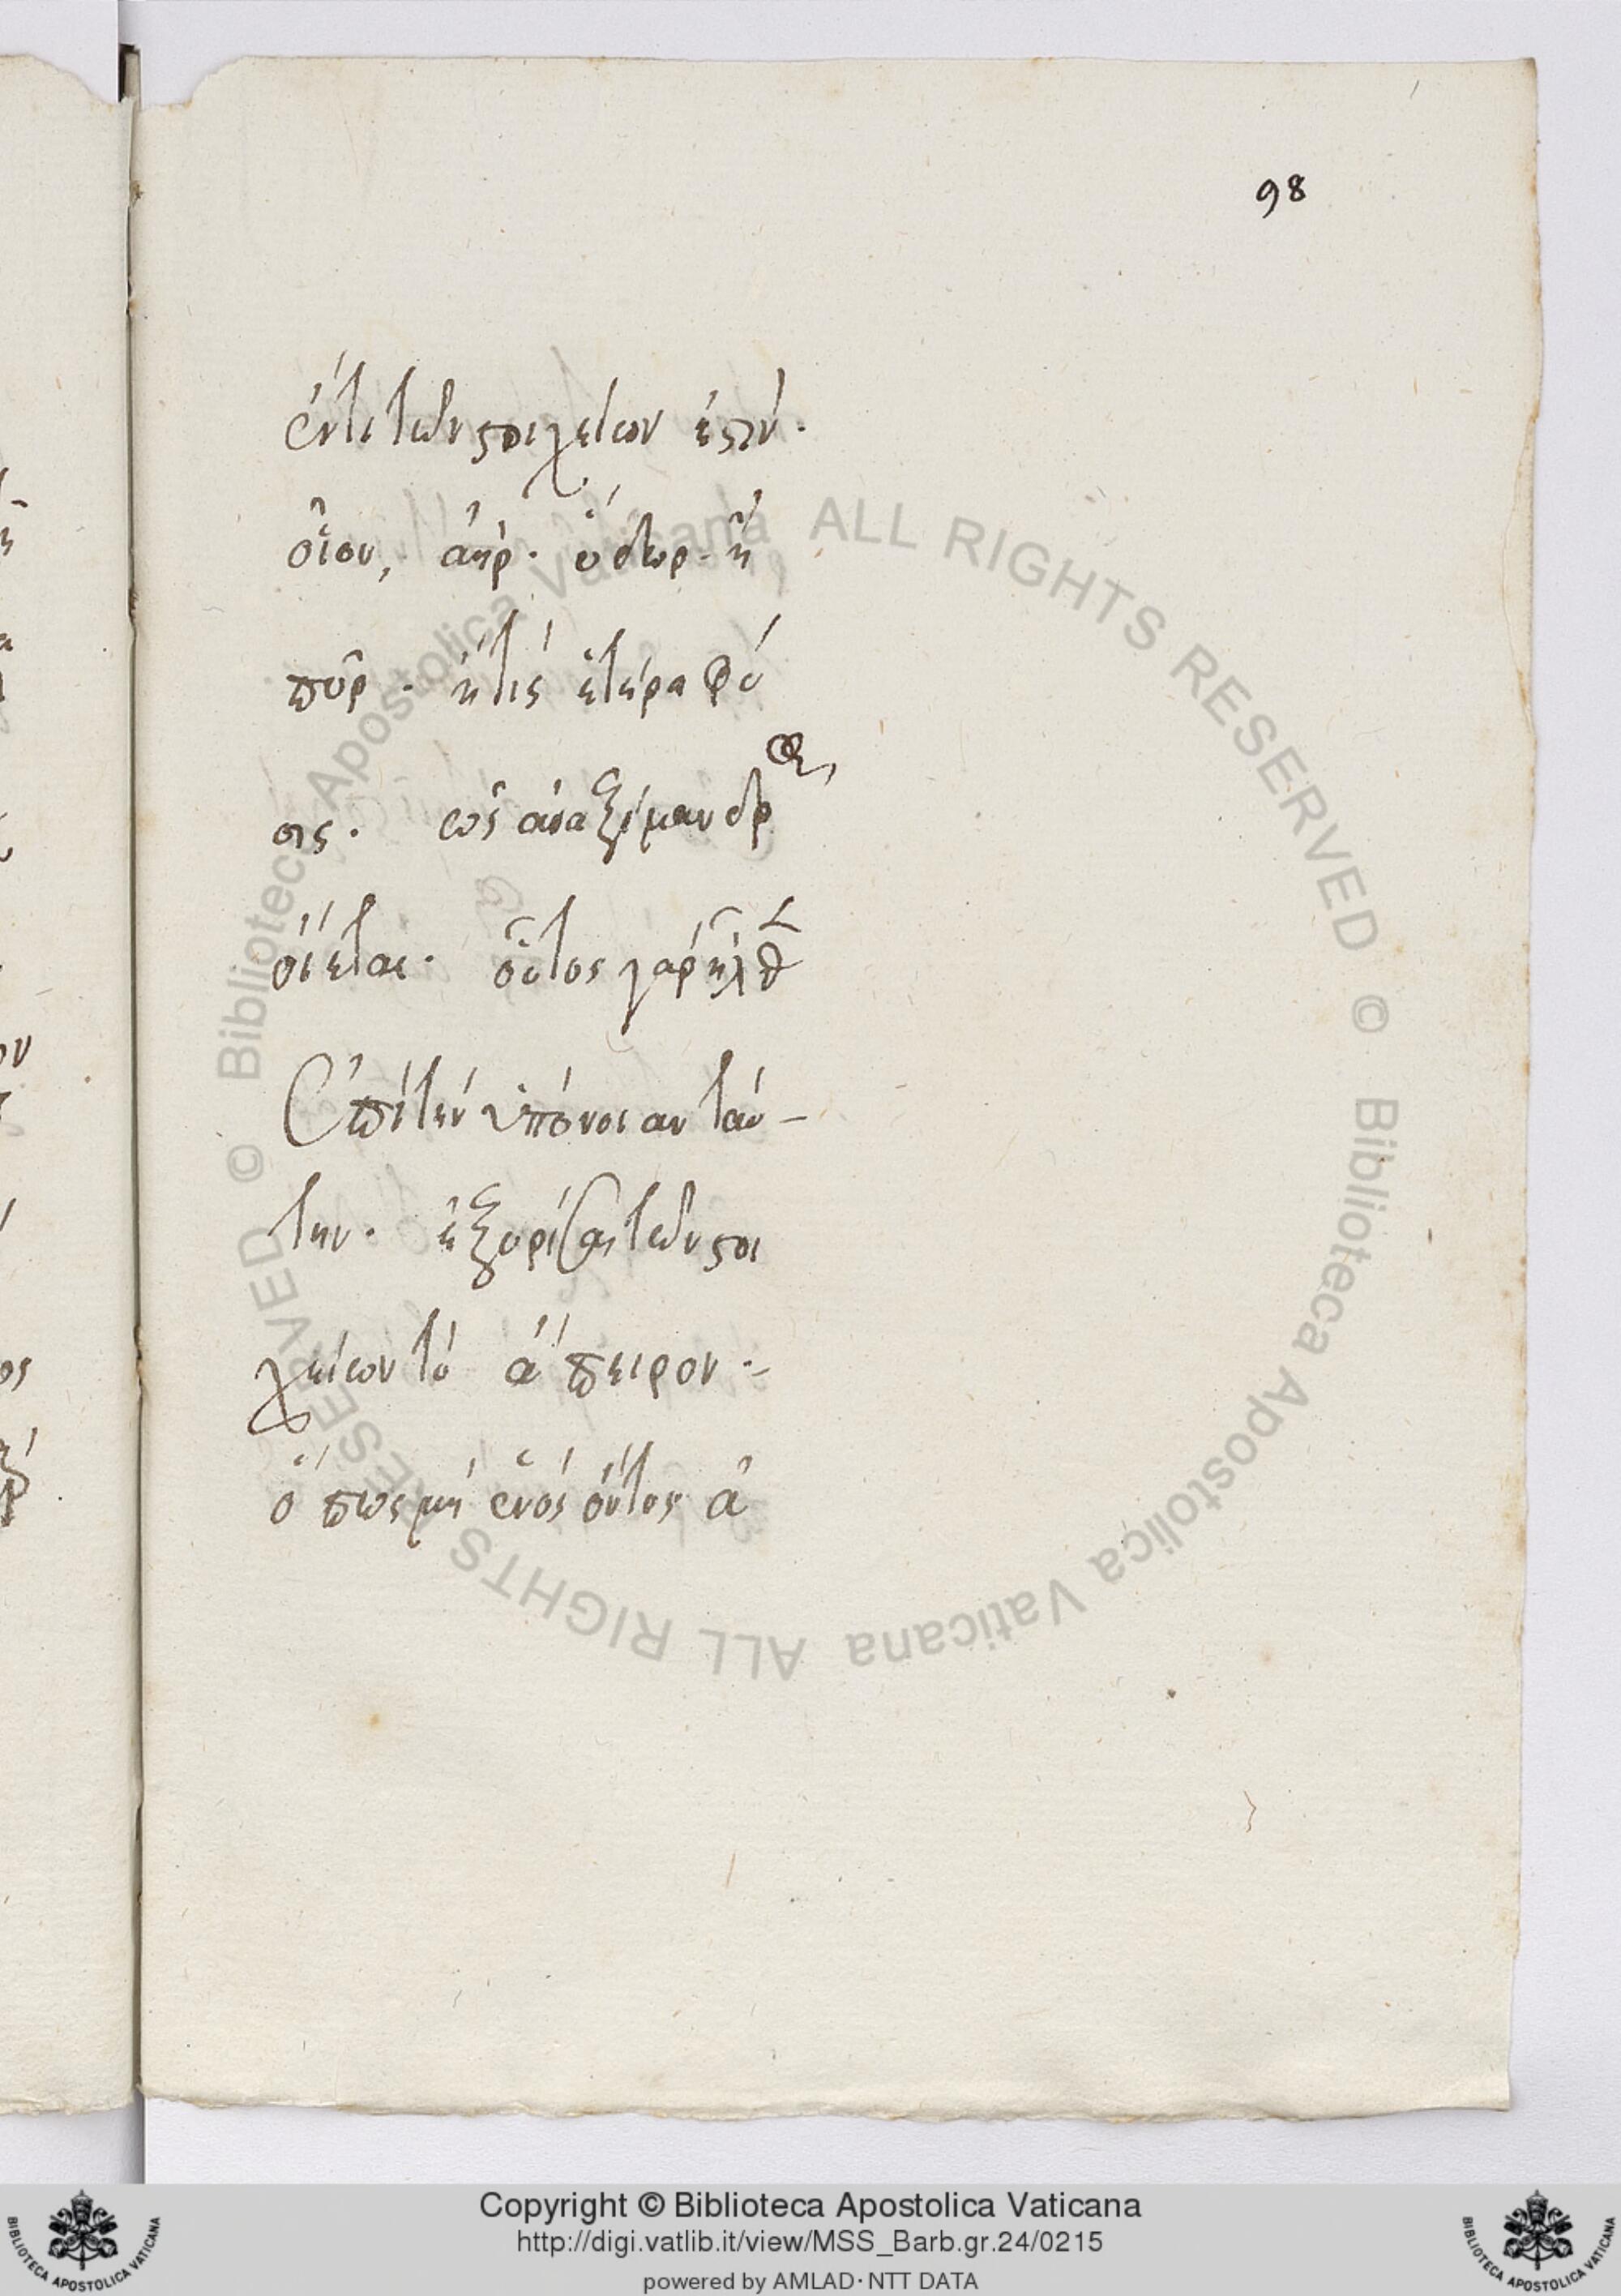 98
ἕν τι τῶν στοιχείων ἐστίν·
οἷον, ἀήρ· ὕδωρ· ἢ
πῦρ· ἤ τις ἑτέρα φύ
σις· ὡς ἀναξίμανδρος
οἴεται· οὗτος γὰρ ἦλθεν
ἐπὶ τὴν ὑπόνοιαν ταύ-
την· ἐξορίσαι τῶν στοι
χείων τὸ ἄπειρον·-
ὅπως μὴ ἑνὸς ὄντος ἀ
© Biblioteca Apostolica Vaticana ALL RIGHTS RESERVED © Biblioteca Apostolica Vaticana ALL RIGHTS RESERVED
Copyright © Biblioteca Apostolica Vaticana
http://digi.vatlib.it/view/MSS_Barb.gr.24/0215
powered by AMLAD·NTT DATA
BIBLIOTECA APOSTOLICA VATICANA
BIBLIOTECA APOSTOLICA VATICANA